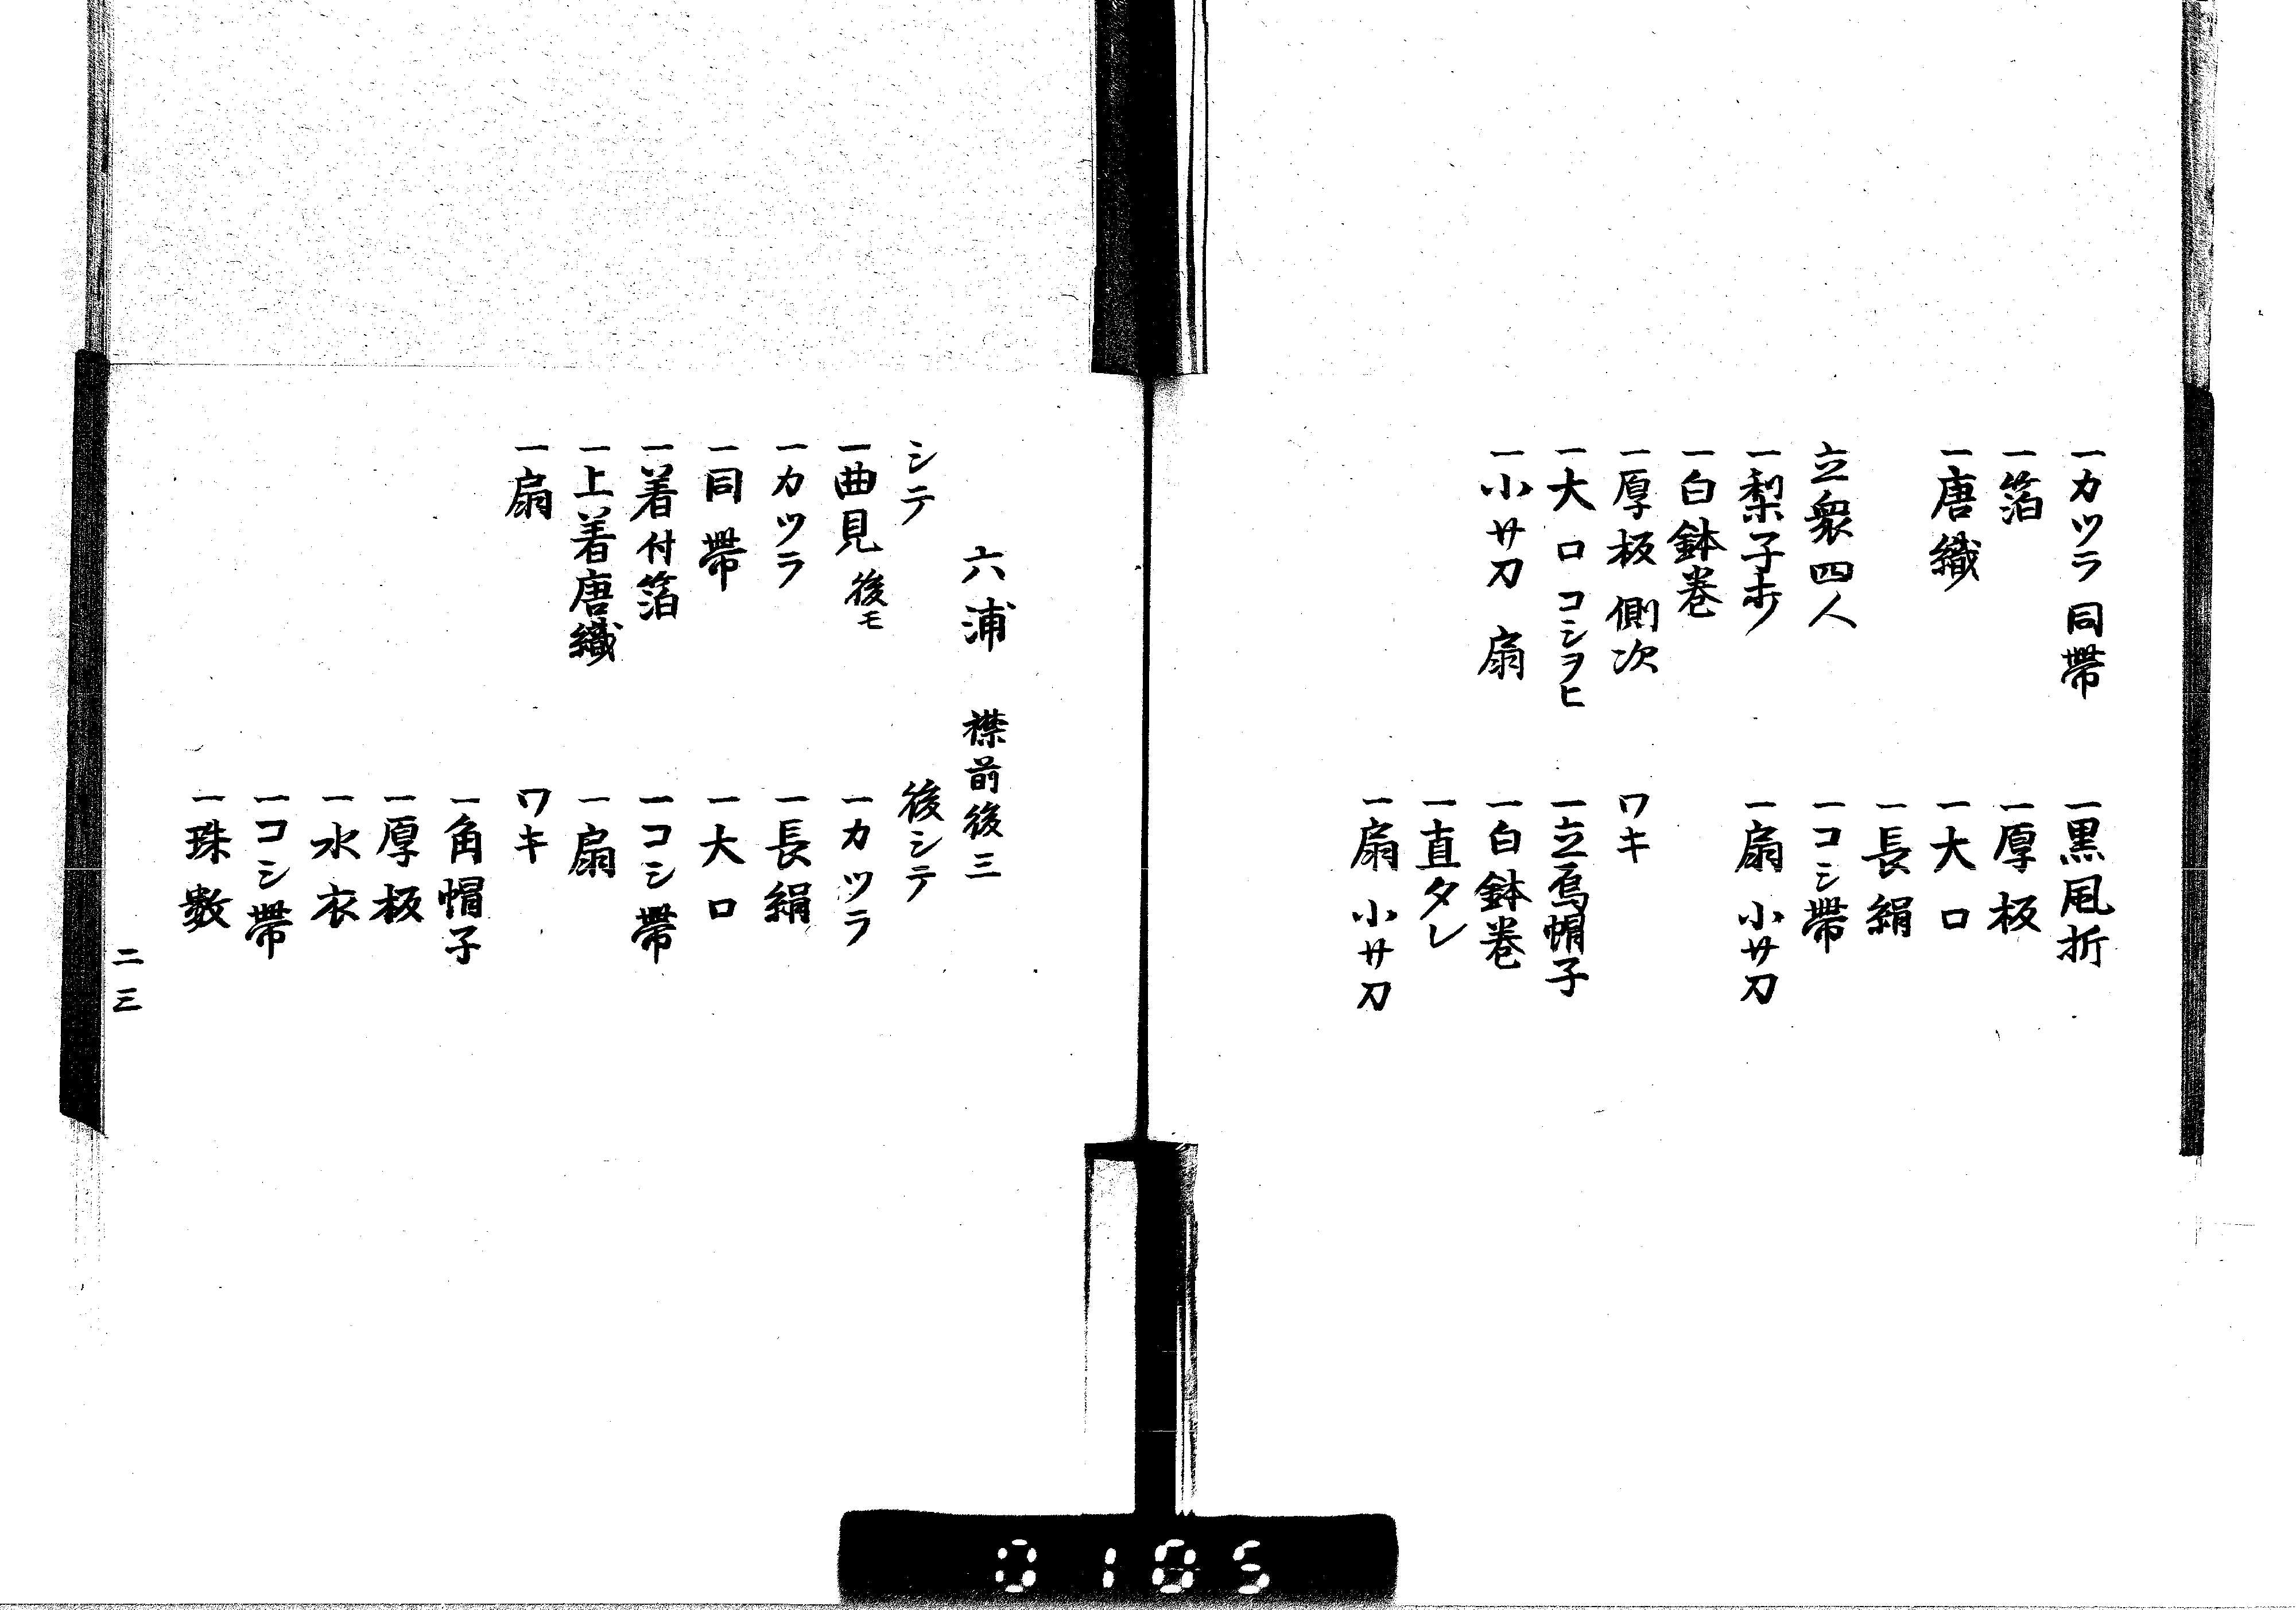 一カツラ 同帯
一箔
一唐織
立衆四人
一梨子打
一白鉢巻
一厚板 側次
一大口 コシヲヒ
一小サ刀 扇
一黒風折
一厚板
一大口
一長絹
一コシ帯
一扇 小サ刀
ワキ
一立烏帽子
一白鉢巻
一直タレ
一扇 小サ刀
六浦 襟前後三
シテ
一曲見 後モ
一カツラ
一同帯
一着付箔
一上着唐織
一扇
後シテ
一カツラ
一長絹
一大口
一コシ帯
一扇
ワキ
一角帽子
一厚板
一水衣
一コシ帯
一珠数
二三
0105